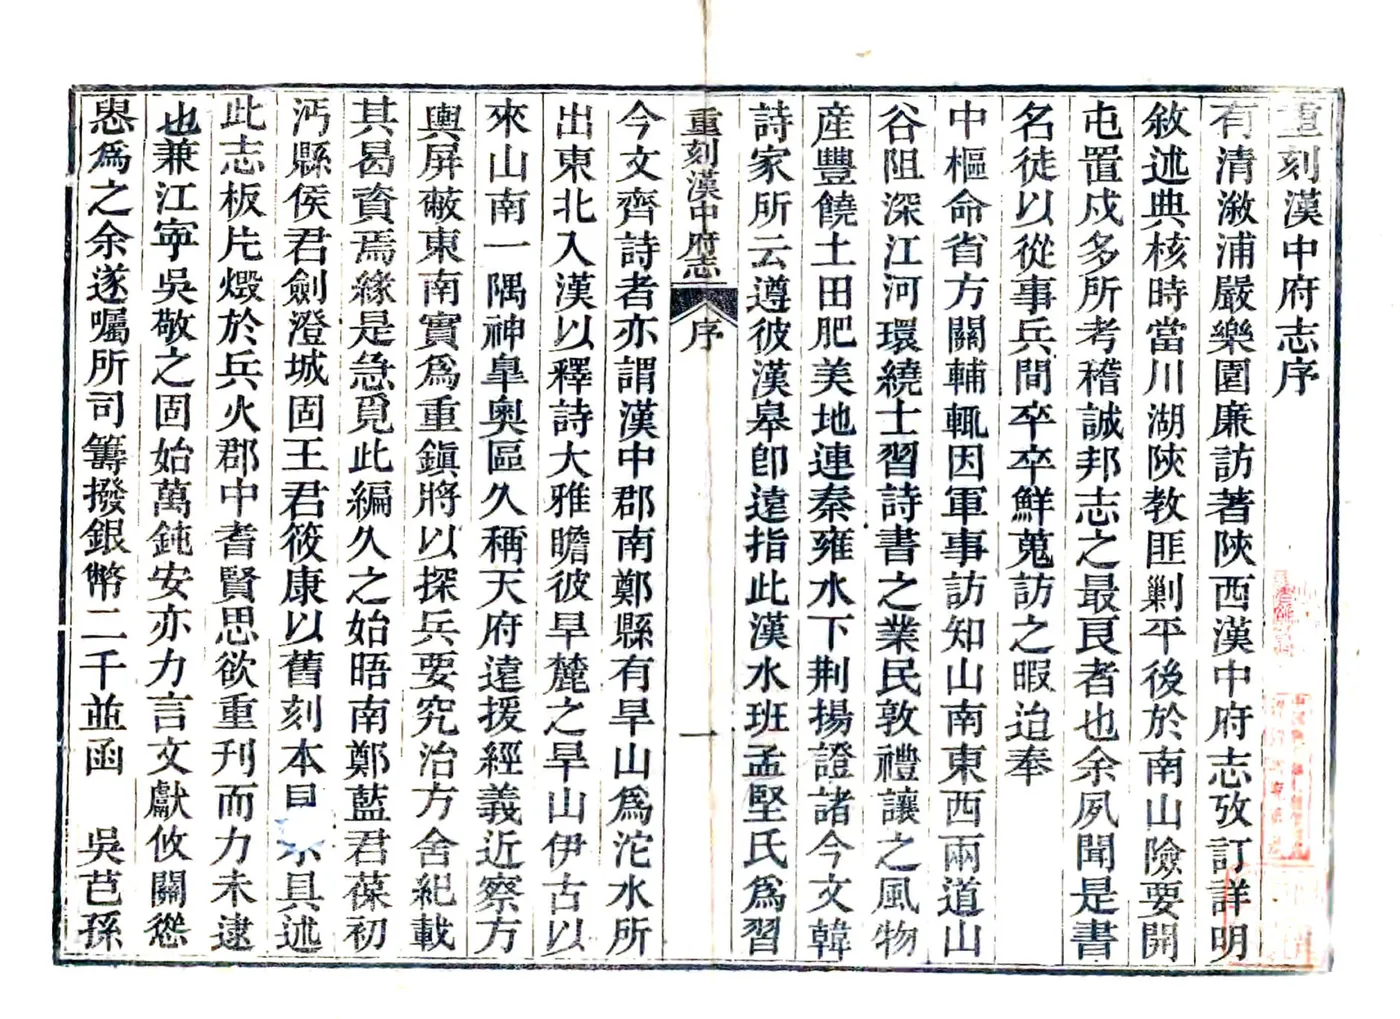 重刻漢中府志序
有清漵浦嚴樂園廉訪著陝西漢中府志攷訂詳明
敘述典核時當川湖陝教匪剿平後於南山險要開
屯置戍多所考稽誠邦志之最良者也余夙聞是書
名徒以從事兵間卒卒鮮蒐訪之暇迨奉
中樞命省方關輔輒因軍事訪知山南東西兩道山
谷阻深江河環繞士習詩書之業民敦禮讓之風物
産豐饒土田肥美地連秦雍水下荆揚證諸今文韓
詩家所云遵彼漢皋卽遠指此漢水班孟堅氏爲習
重刻漢中府志
序
一
今文齊詩者亦謂漢中郡南鄭縣有旱山爲沱水所
出東北入漢以釋詩大雅瞻彼旱麓之旱山伊古以
來山南一隅神臯奧區久稱天府遠援經義近察方
輿屏蔽東南實爲重鎭將以探兵要究治方舍紀載
其曷資焉緣是急覓此編久之始晤南鄭藍君葆初
沔縣侯君劍澄城固王君筱康以舊刻本具述
此志板片燬於兵火郡中耆賢思欲重刊而力未逮
也兼江寧吳敬之固始萬鈍安亦力言文獻攸關慫
恖爲之余遂囑所司籌撥銀幣二千並函 吳芭孫